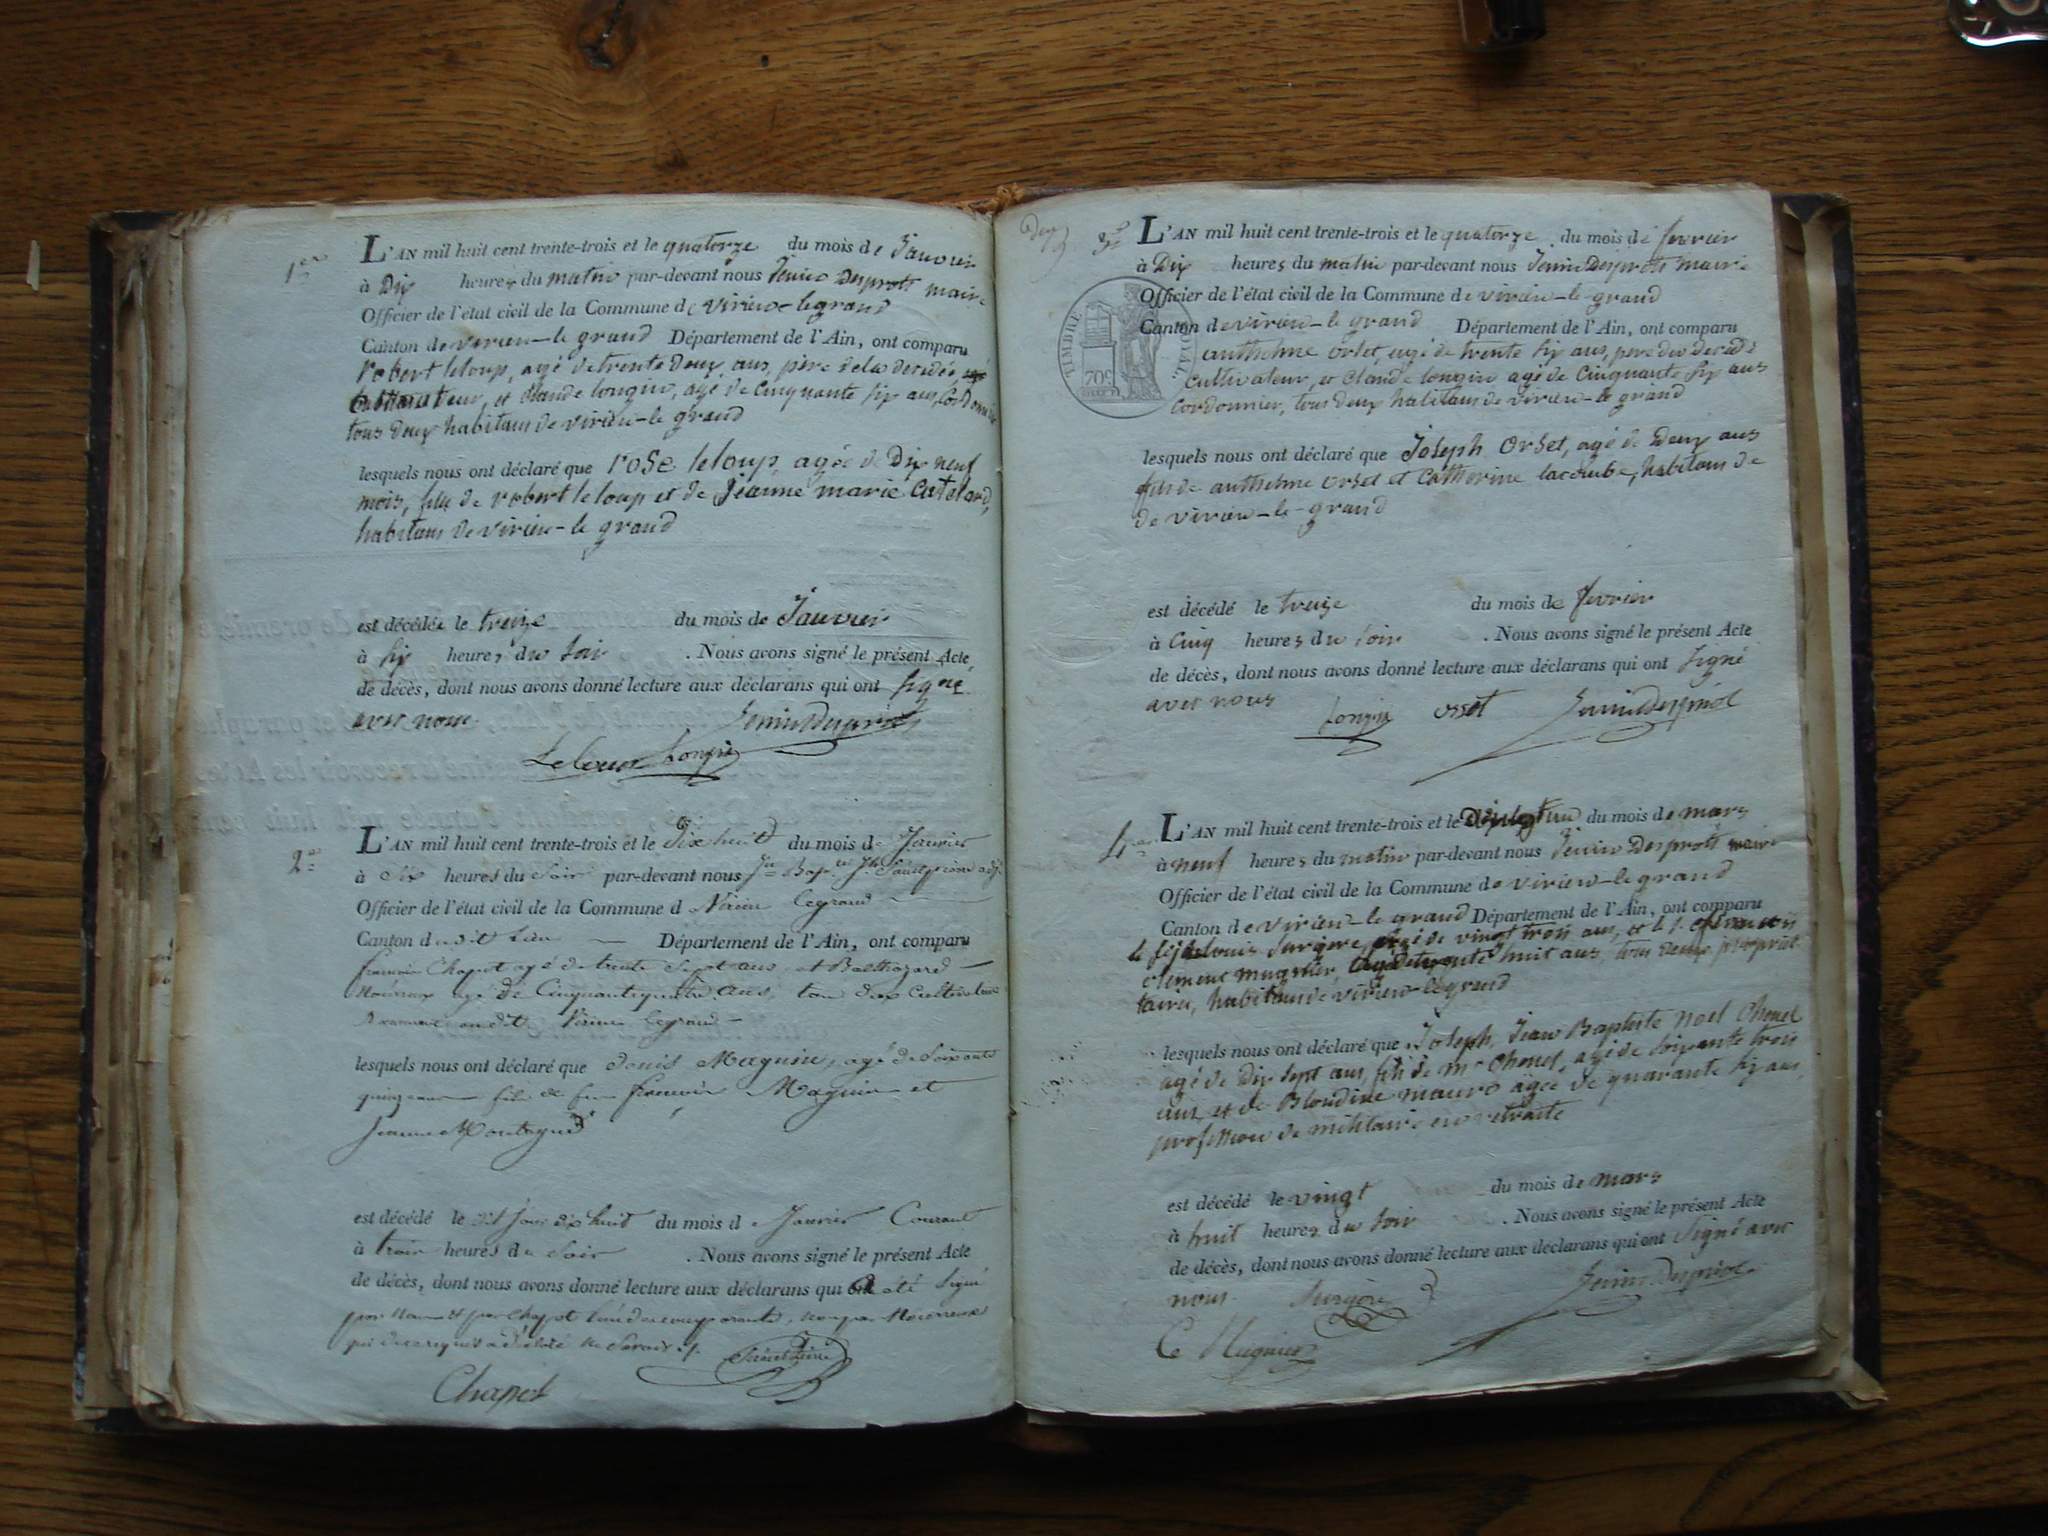 1er
L'AN mil huit cent trente-trois et le quatorze du mois de Janvier
à Dix heures du matin par-devant nous Jenin Desprots maire
Officier de l'état civil de la Commune de virieu-legrand
Canton de virieu-le grand Département de l'Ain, ont comparu
robert leloup, agé de trente Deux ans, père de la décédée,
cultivateur, et claude longin, agé de Cinquante six ans, Cordonnier
tous Deux habitans de virieu-le grand
lesquels nous ont déclaré que rose leloup, agée de Dix neuf
mois, fille de robert leloup et de Jeanne marie Catelard,
habitans de virieu-le grand
est décédée le treize du mois de Janvier
à six heures du soir . Nous avons signé le présent Acte
de décès, dont nous avons donné lecture aux déclarans qui ont signé
avec nous
Jenin Desprots
Leloup Longin
2e
L'AN mil huit cent trente-trois et le Dix huit du mois de Janvier
à Six heures du Soir par-devant nous Jn Bapte Jh adj.
Officier de l'état civil de la Commune d Virieu legrand
Canton du dit lieu Département de l'Ain, ont comparu
francois Chapot agé de trente Sept ans et Balthazard
agé de Cinquante quatre ans, tous deux Cultivateurs
Virieu legrand
lesquels nous ont déclaré que Denis Maguin, agé de Soixante
quinze ans fils de feu francois Maguin et
Jeanne Montagnid
est décédé le dit jour dix huit du mois d Janvier Courant
à trois heures du Soir . Nous avons signé le présent Acte
de décès, dont nous avons donné lecture aux déclarans qui a été Signé
par Nous et par Chapot l'un des comparants, non par
qui de ce requis a déclaré ne Savoir
Chapot
3e
L'AN mil huit cent trente-trois et le quatorze du mois de fevrier
à Dix heures du matin par-devant nous Jenin Desprots maire
Officier de l'état civil de la Commune de virieu-le-grand
Canton de virieu-le grand Département de l'Ain, ont comparu
anthelme orset, agé de trente six ans, pere du decedé
cultivateur, et Claude longin agé de Cinquante six ans
cordonnier, tous deux habitans de virieu-le grand
TIMBRE ROYAL
70c
lesquels nous ont déclaré que Joseph Orset, agé de Deux ans
fils de anthelme orset et Catherine lacombe, habitans de
de virieu-le-grand
est décédé le treize du mois de fevrier
à Cinq heures du soir . Nous avons signé le présent Acte
de décès, dont nous avons donné lecture aux déclarans qui ont signé
avec nous
Longin orset Jenin Desprots
4e
L'AN mil huit cent trente-trois et le vingt un du mois de mars
à neuf heures du matin par-devant nous Jenin Desprots maire
Officier de l'état civil de la Commune de virieu-le grand
Canton de virieu-le grand Département de l'Ain, ont comparu
louis Surgere, agé de vingt trois ans, et le s.
clement mugnier, agé de trente huit ans, tous deux proprié-
taires, habitans de virieu-le grand
lesquels nous ont déclaré que Joseph, Jean Baptiste noel Chenel
agé de Dix sept ans, fils de mr Chenel, agé de soixante trois
ans, et de Blondine mauro agée de quarante six ans,
profession de militaire en retraite
est décédé le vingt du mois de mars
à huit heures du soir . Nous avons signé le présent Acte
de décès, dont nous avons donné lecture aux déclarans qui ont signé avec
nous.
Surgère Jenin Desprots
C Mugnier